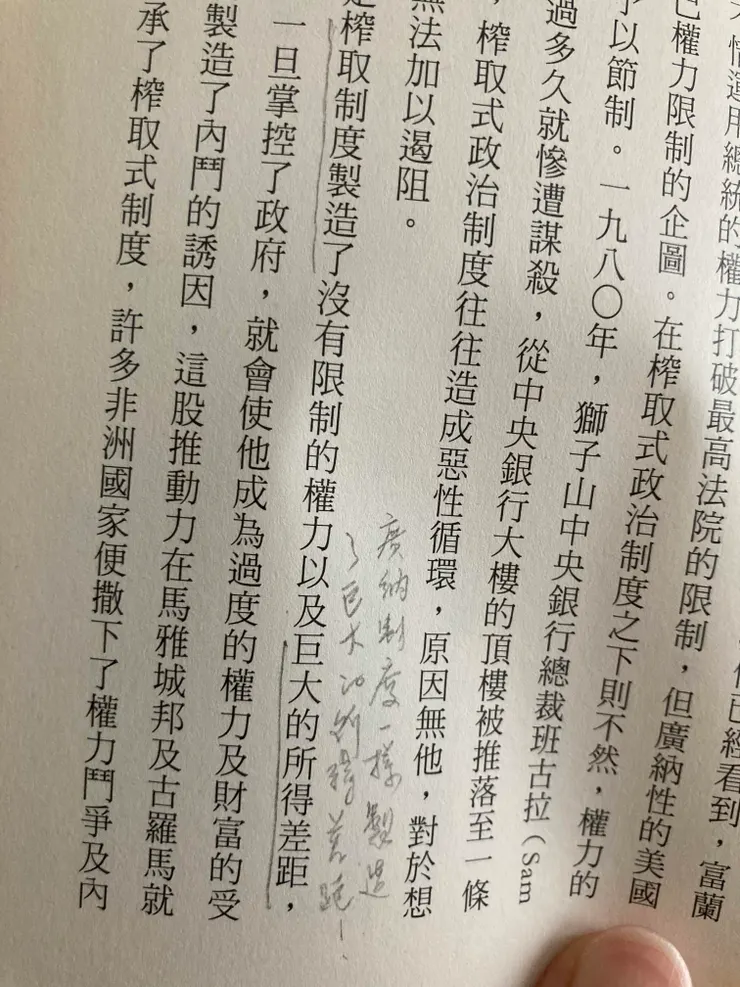 大情運用總統的權力打破最高法院的限制，但廣納性的美國
已權力限制的企圖。在榨取式政治制度之下則不然，權力的
予以節制。一九八〇年，獅子山中央銀行總裁班古拉（Sam
過多久就慘遭謀殺，從中央銀行大樓的頂樓被推落至一條
，榨取式政治制度往往造成惡性循環，原因無他，對於想
無法加以遏阻。
廣納制度一樣製造
了巨大的所得差距！
是榨取制度製造了沒有限制的權力以及巨大的所得差距，
一旦掌控了政府，就會使他成為過度的權力及財富的受
製造了內鬥的誘因，這股推動力在馬雅城邦及古羅馬就
承了榨取式制度，許多非洲國家便撒下了權力鬥爭及內